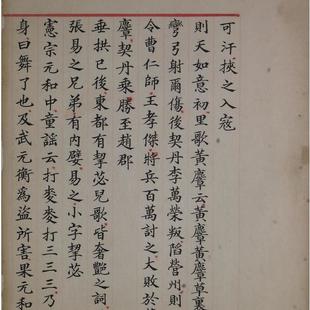 可汗挾之入寇
則天如意初里歌黃麞云黃麞黃麞草裏
彎弓射爾傷後契丹李萬榮叛陷營州則
令曹仁師王孝傑將兵百萬討之大敗於
麞契丹乘勝至趙郡
垂拱已後東都有挈苾兒歌皆奢艷之詞
張易之兄弟有內嬖易之小字挈苾
憲宗元和中童謠云打麥麥打三三三乃
身曰舞了也及武元衡為盜所害果元和